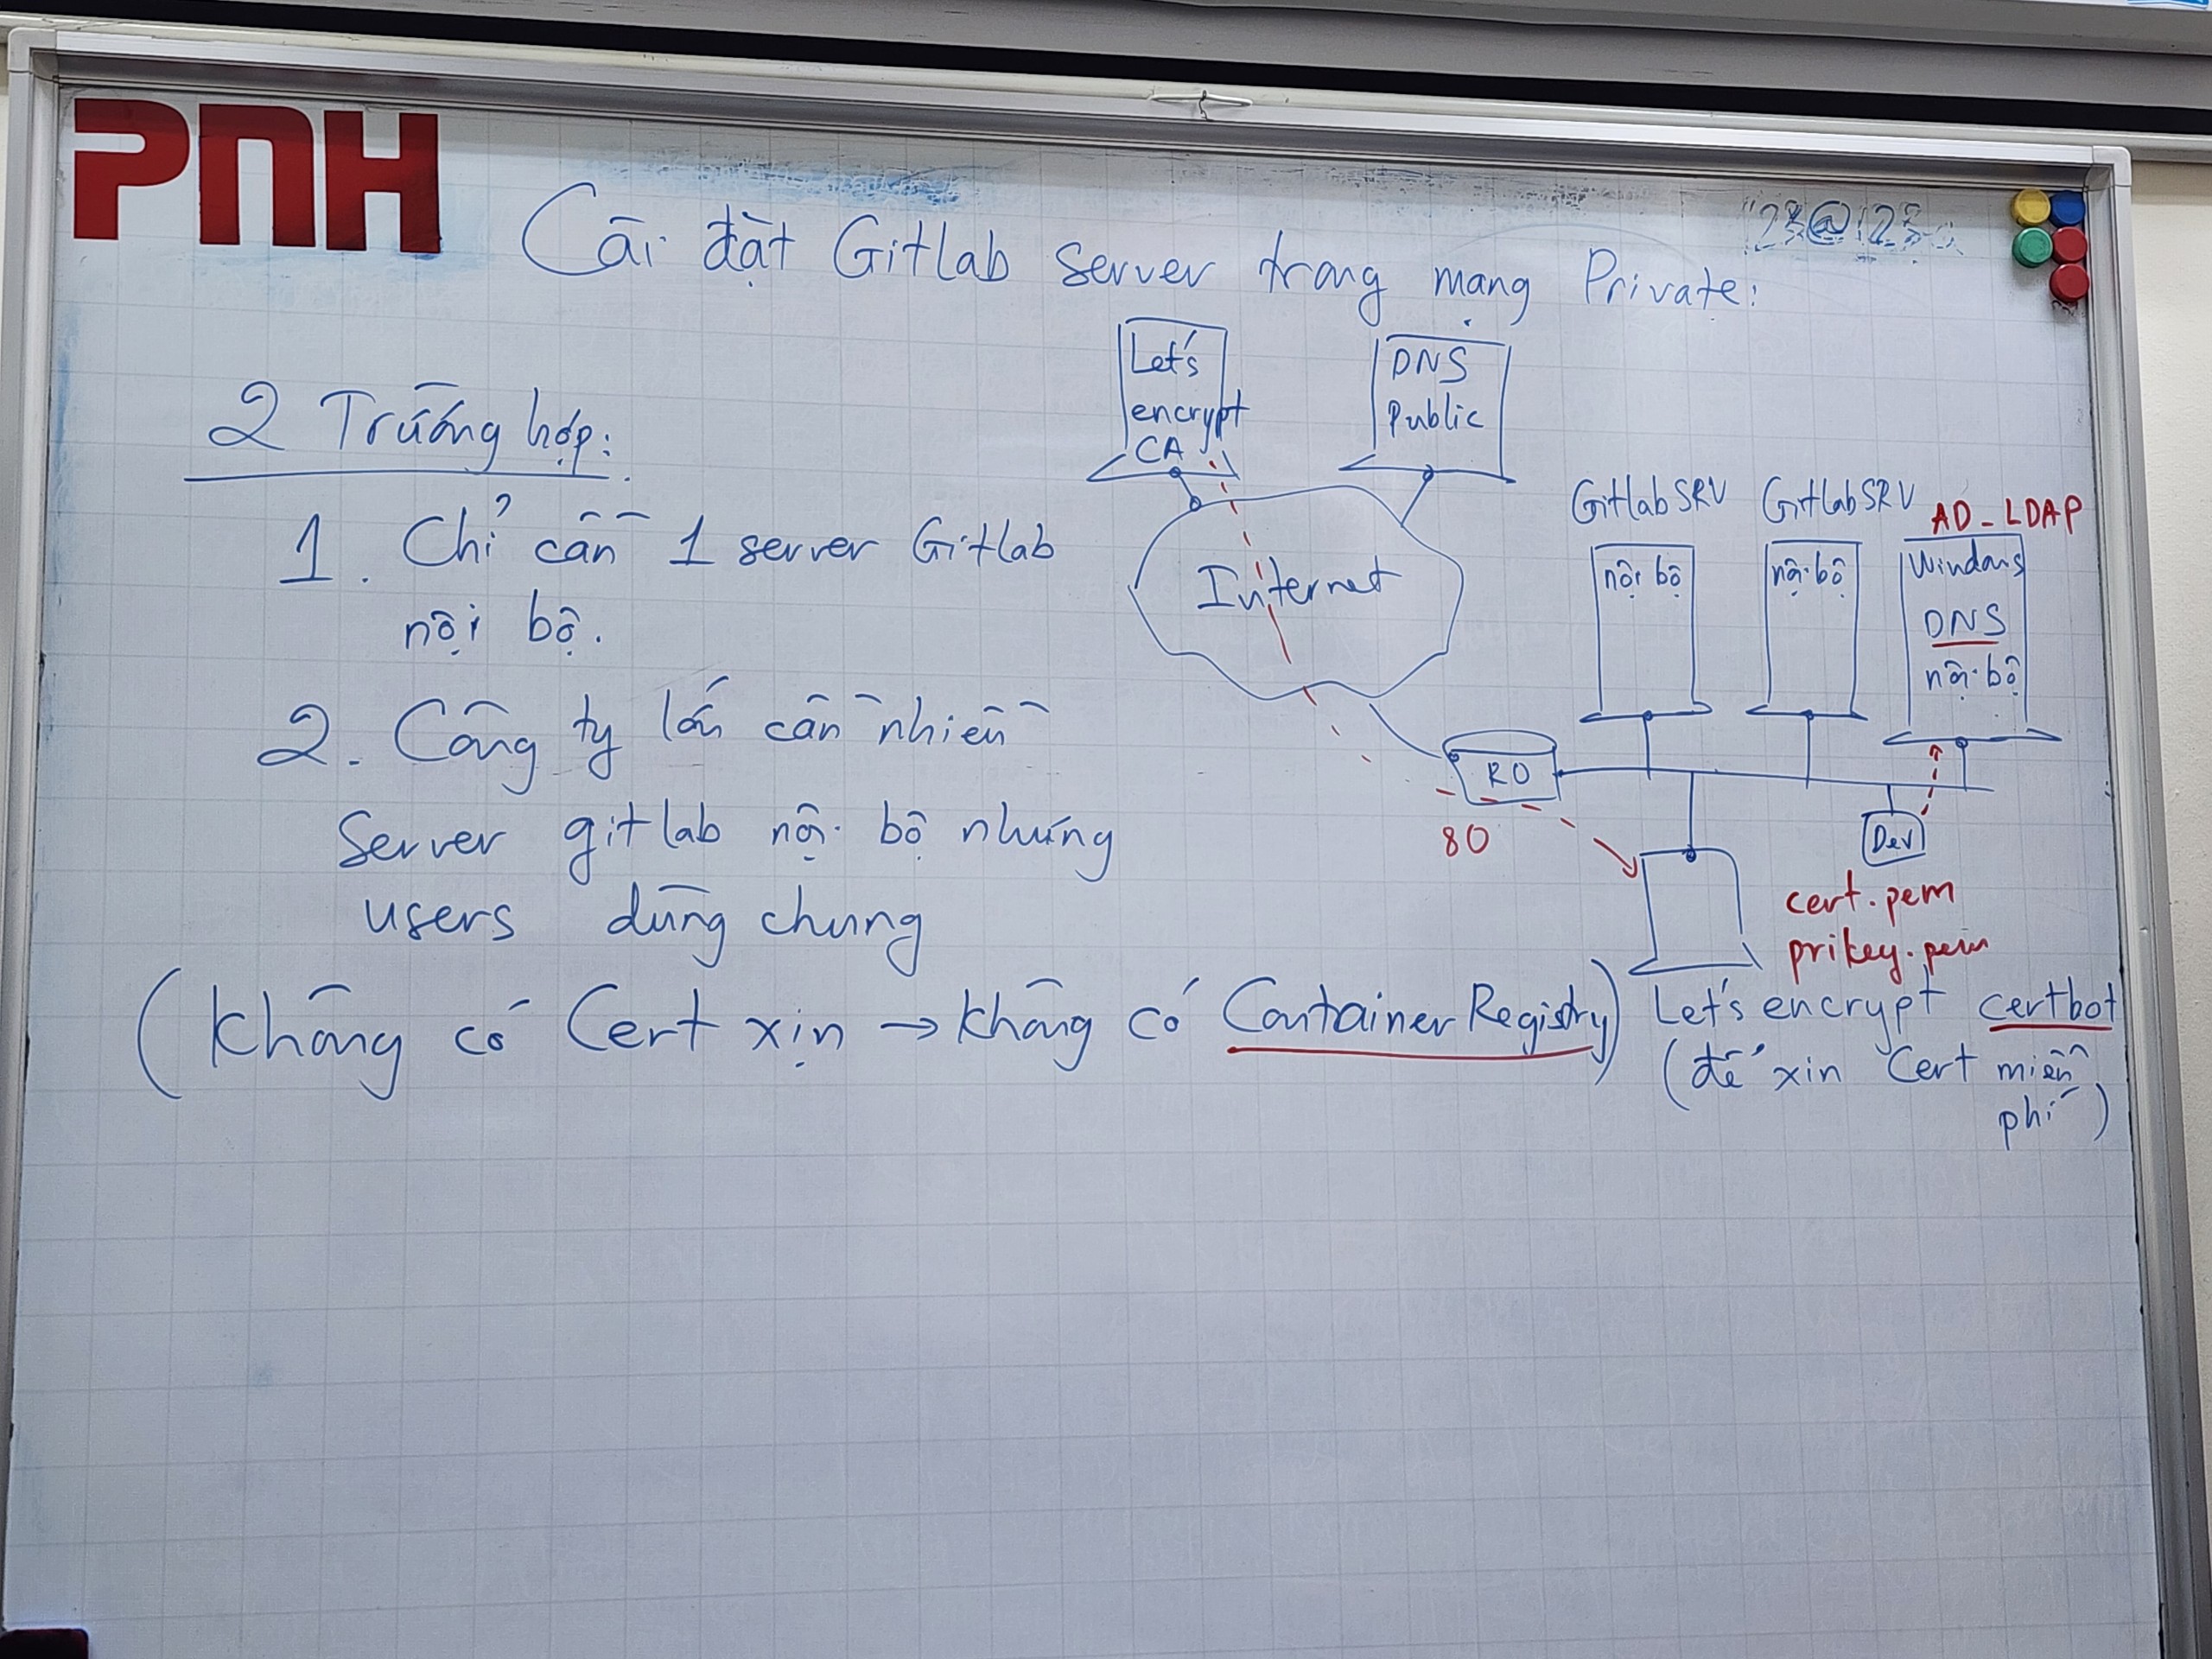 PNH
123@123a
Cài đặt Gitlab server trong mạng Private:
2 Trường hợp:
1. Chỉ cần 1 server Gitlab
nội bộ.
2. Công ty lớn cần nhiều
Server gitlab nội bộ nhưng
users dùng chung
(Không có Cert xịn → không có Container Registry)
Let's
encrypt
CA
DNS
Public
Internet
Gitlab SRV
nội bộ
Gitlab SRV
nội bộ
AD_LDAP
Windows
DNS
nội bộ
RO
80
Dev
cert.pem
prikey.pem
Let's encrypt certbot
(để xin Cert miễn
phí)